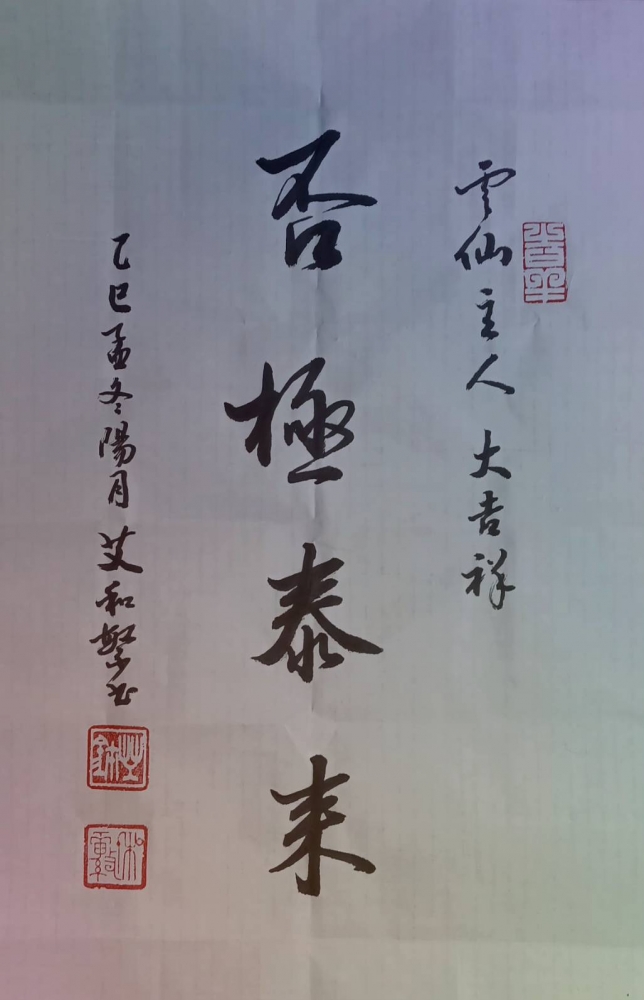 雲仙主人大吉祥
否極泰来
乙巳孟冬陽月艾和繁书